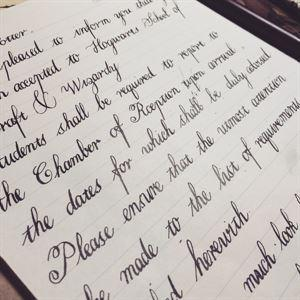 pleased to inform you that
accepted to Hogwarts School of
craft & Wizardry
students shall be required to report to
the Chamber of Reception upon arrival,
the dates for which shall be duly closed
Please ensure that the utmost attention
be made to the list of requirements
herewith
much look